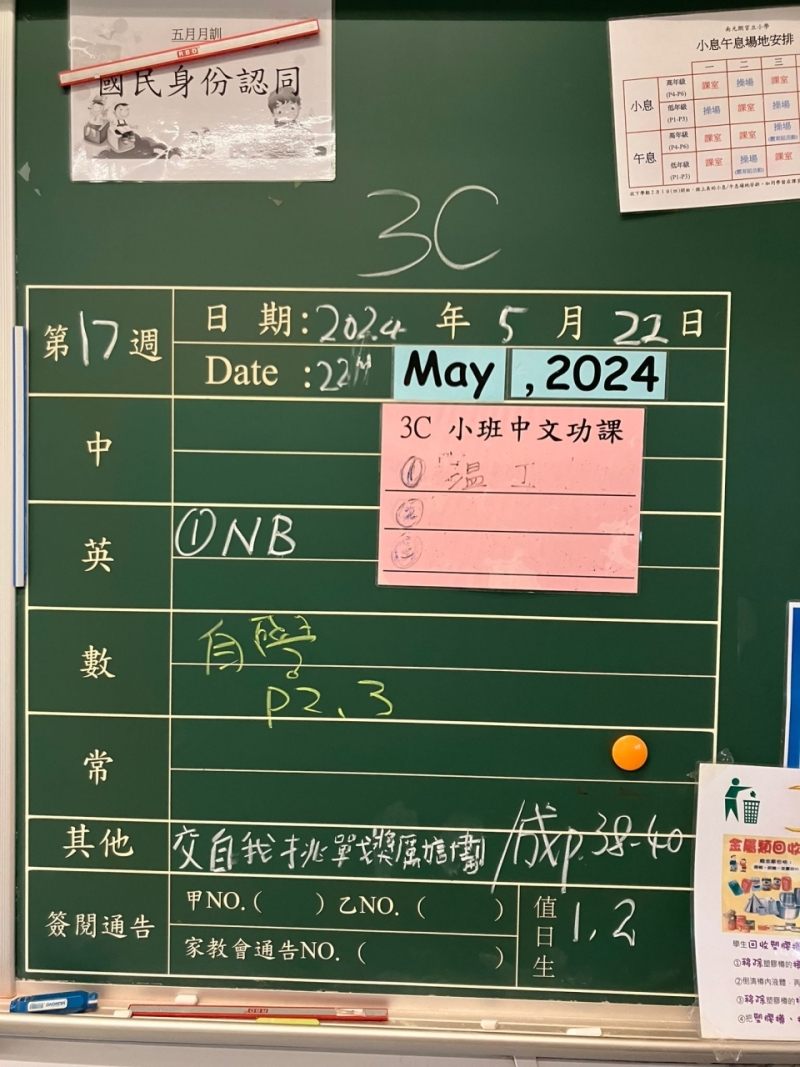 五月月訓
國民身份認同
南元朗官立小學
小息午息場地安排
一 二 三
小息 高年級 (P4-P6) 課室 操場 課室
低年級 (P1-P3) 操場 課室 操場
午息 高年級 (P4-P6) 課室 課室 操場
低年級 (P1-P3) 課室 操場 課室
3C
第17週
日期:2024年5月22日
Date :22nd May ,2024
中
3C 小班中文功課
① 溫工
②
③
英 ①NB
數 自學
P2、3
常
其他 交自我挑戰獎勵計劃 /成p.38-40
簽閱通告 甲NO.( ) 乙NO. ( )
家教會通告NO. ( )
值日生 1,2
金屬類回收
學生回收塑膠
①移除塑膠樽的
②倒清樽內液體
③移除塑膠樽的
④把塑膠樽、